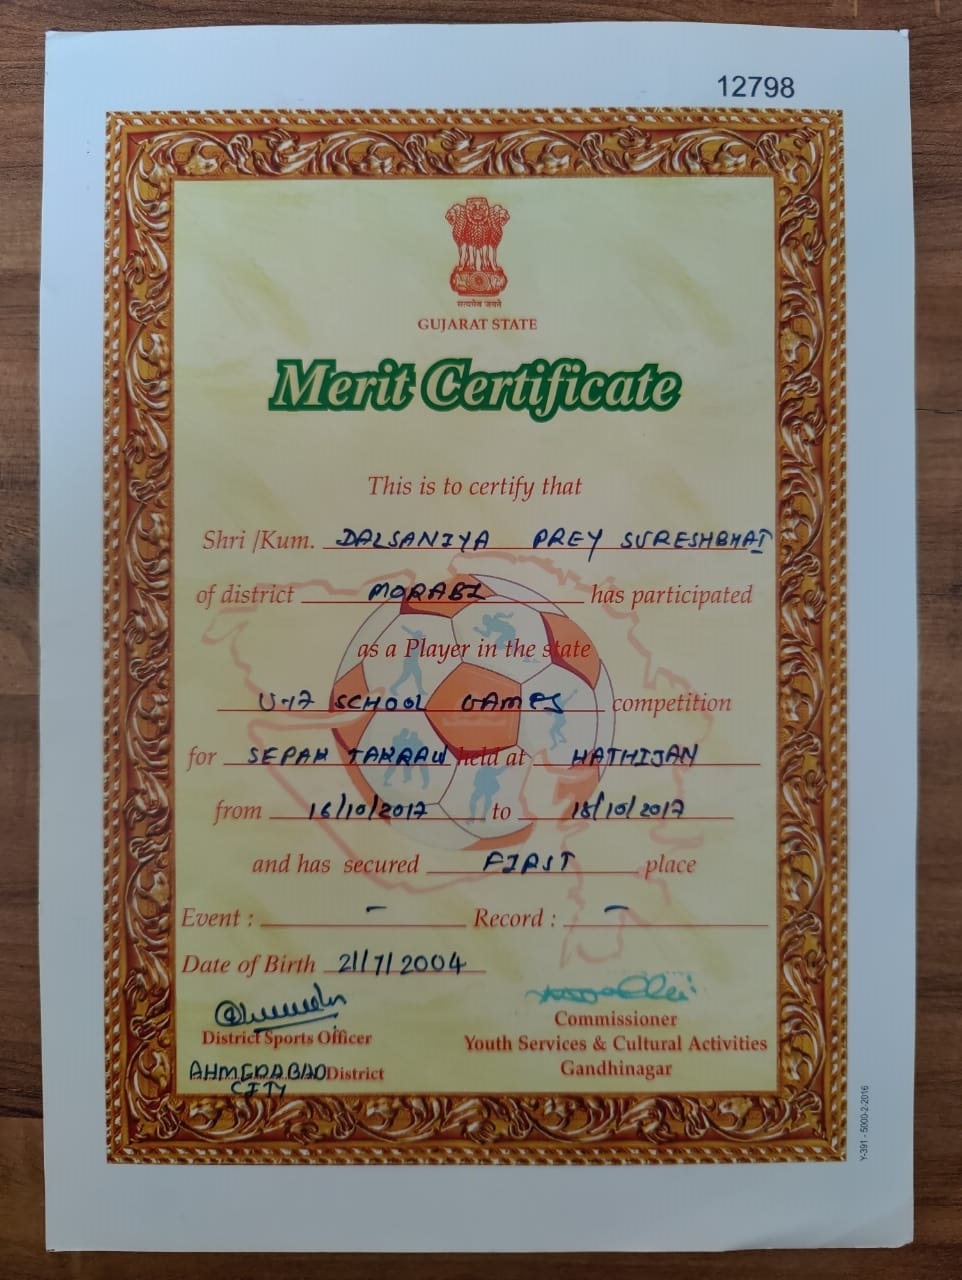 12798
सत्यमेव जयते
GUJARAT STATE
Merit Certificate
This is to certify that
Shri /Kum. DALSANIYA PREY SURESHBHAI
of district MORABI has participated
as a Player in the state
U-17 SCHOOL GAMES competition
for SEPAK TAKRAW held at HATHIJAN
from 16/10/2017 to 18/10/2017
and has secured FIRST place
Event : - Record : -
Date of Birth 21/7/2004
District Sports Officer
AHMEDABAD District
CITY
Commissioner
Youth Services & Cultural Activities
Gandhinagar
Y-391 - 5000-2-2016